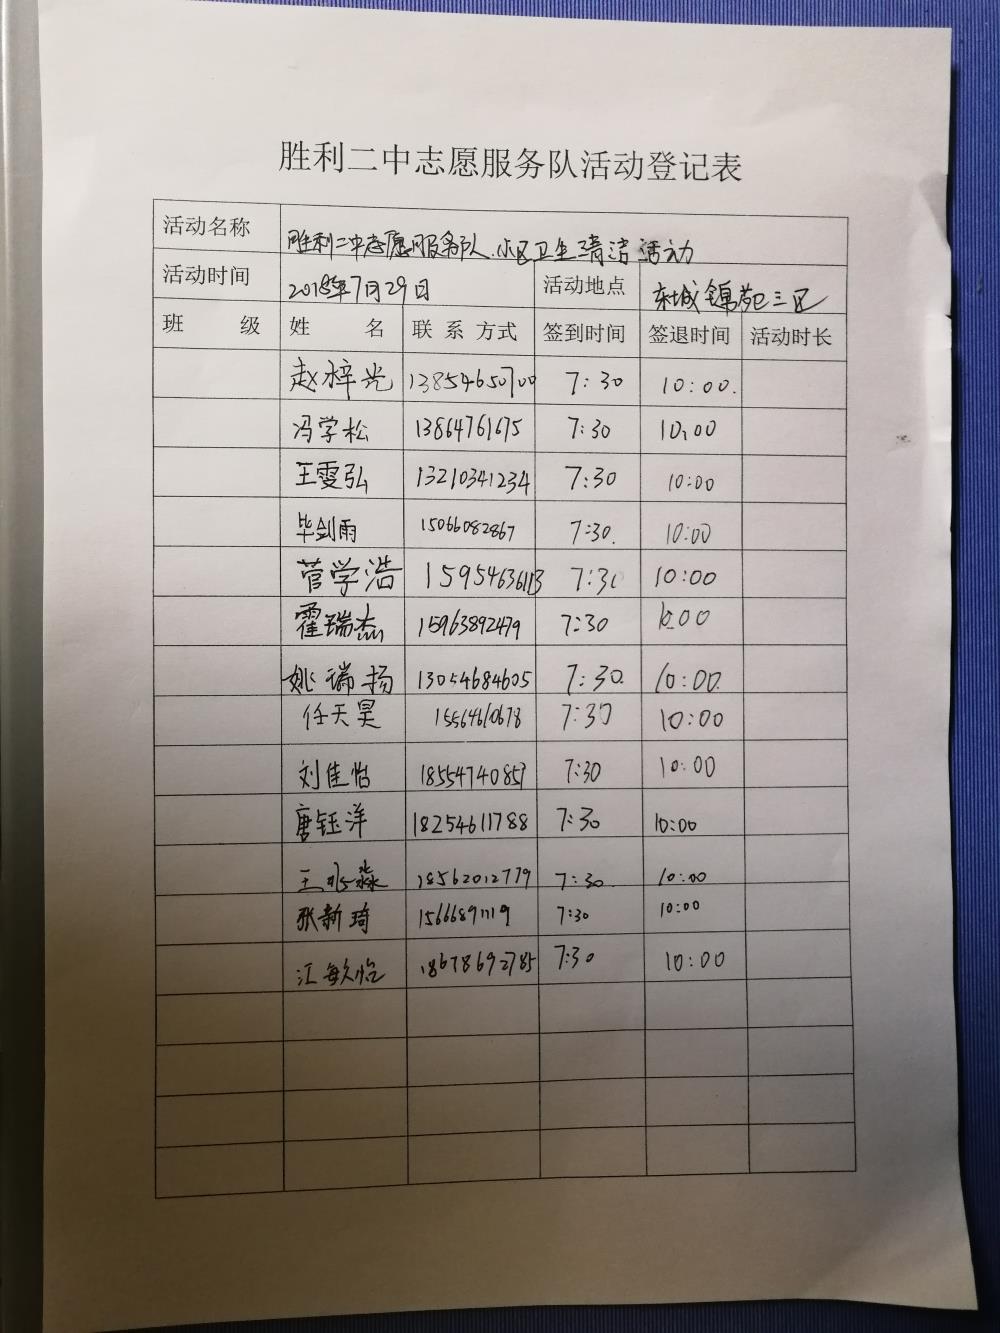 胜利二中志愿服务队活动登记表
活动名称 胜利二中志愿服务队小区卫生清洁活动
活动时间 2018年7月29日 活动地点 东城锦苑三区
班 级 姓 名 联系方式 签到时间 签退时间 活动时长
赵梓光 13854650700 7:30 10:00.
冯学松 13864761675 7:30 10:00
王雯弘 13210341234 7:30 10:00
毕剑雨 15066082867 7:30. 10:00
菅学浩 15954636113 7:30 10:00
霍瑞杰 15963892479 7:30 10:00
姚瑞扬 13054684605 7:30. 10:00.
任天昊 15564610678 7:30 10:00
刘佳怡 18554740857 7:30 10:00
唐钰洋 18254611788 7:30 10:00
王兆淼 18562012779 7:30. 10:00
张新琦 15666891119 7:30 10:00
江敏怡 18678692785 7:30 10:00